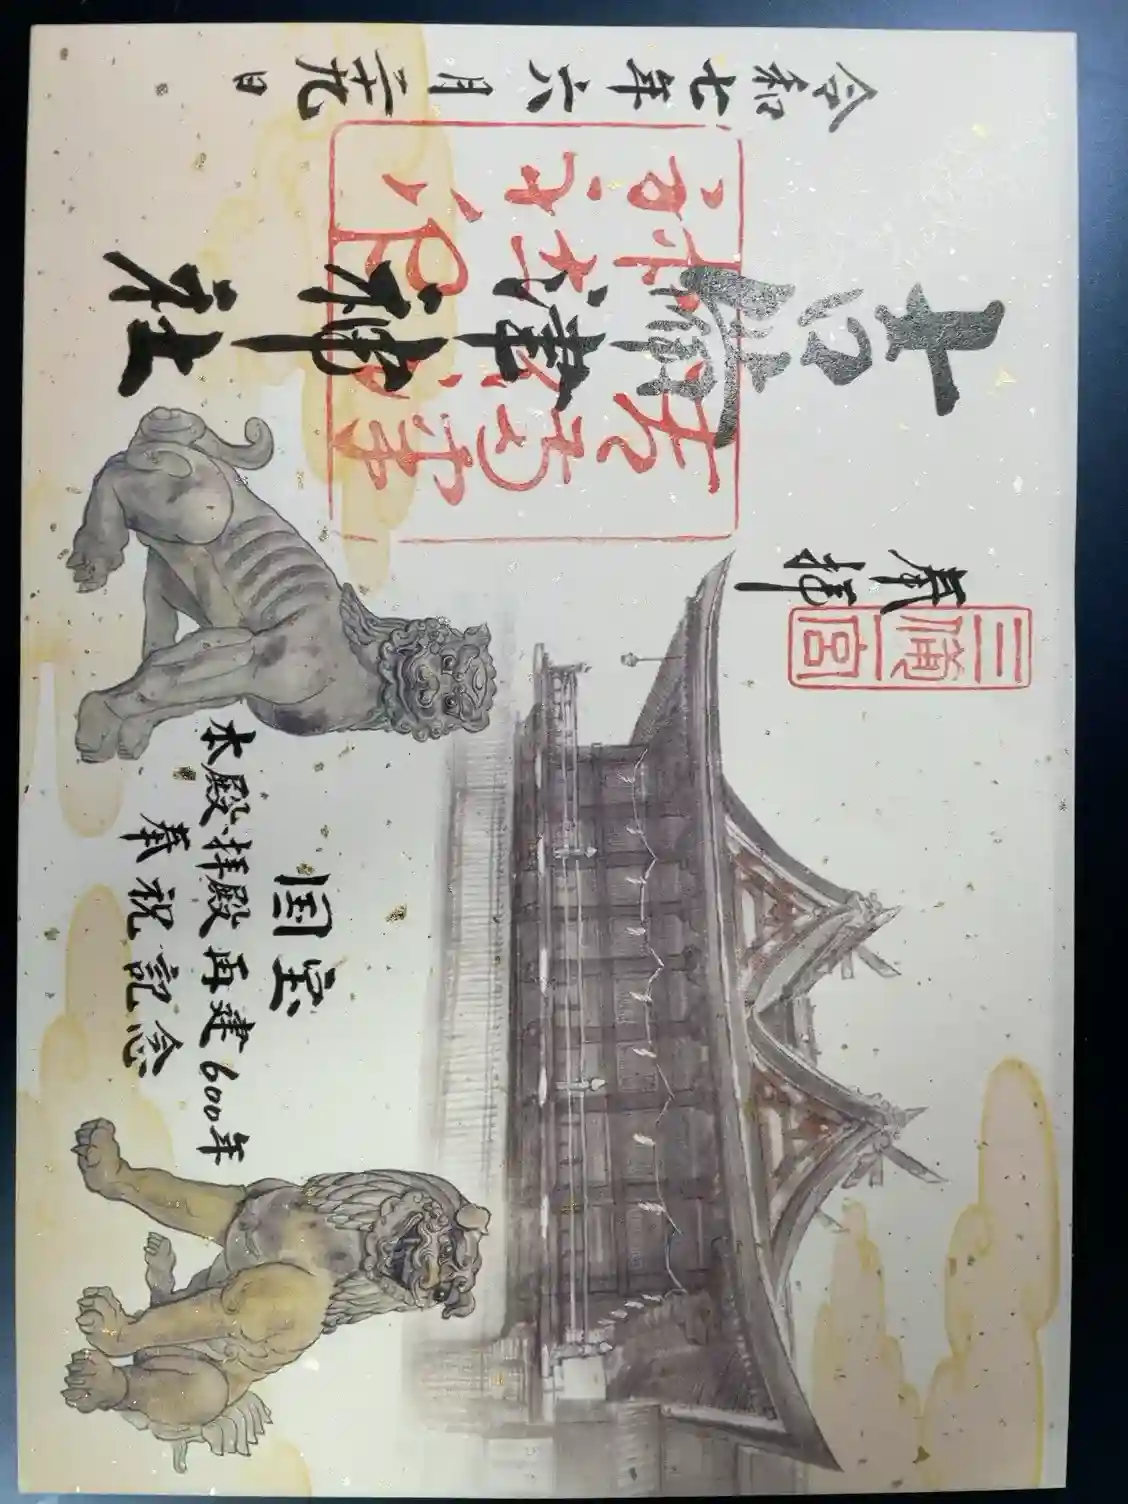 奉拝
三備一宮
吉備津神社
令和七年六月二十九日
国宝
本殿拝殿再建600年
奉祝記念